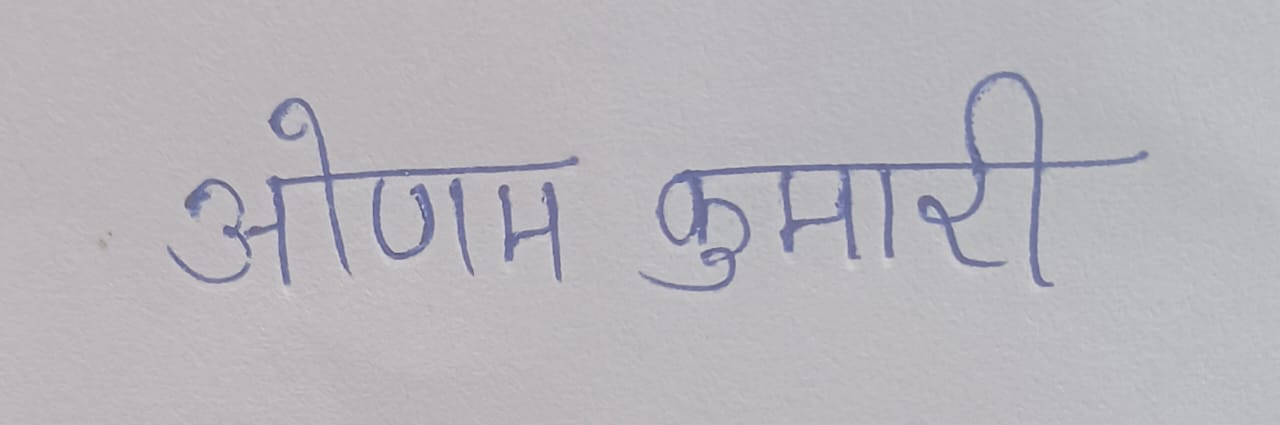 ओणम कुमारी